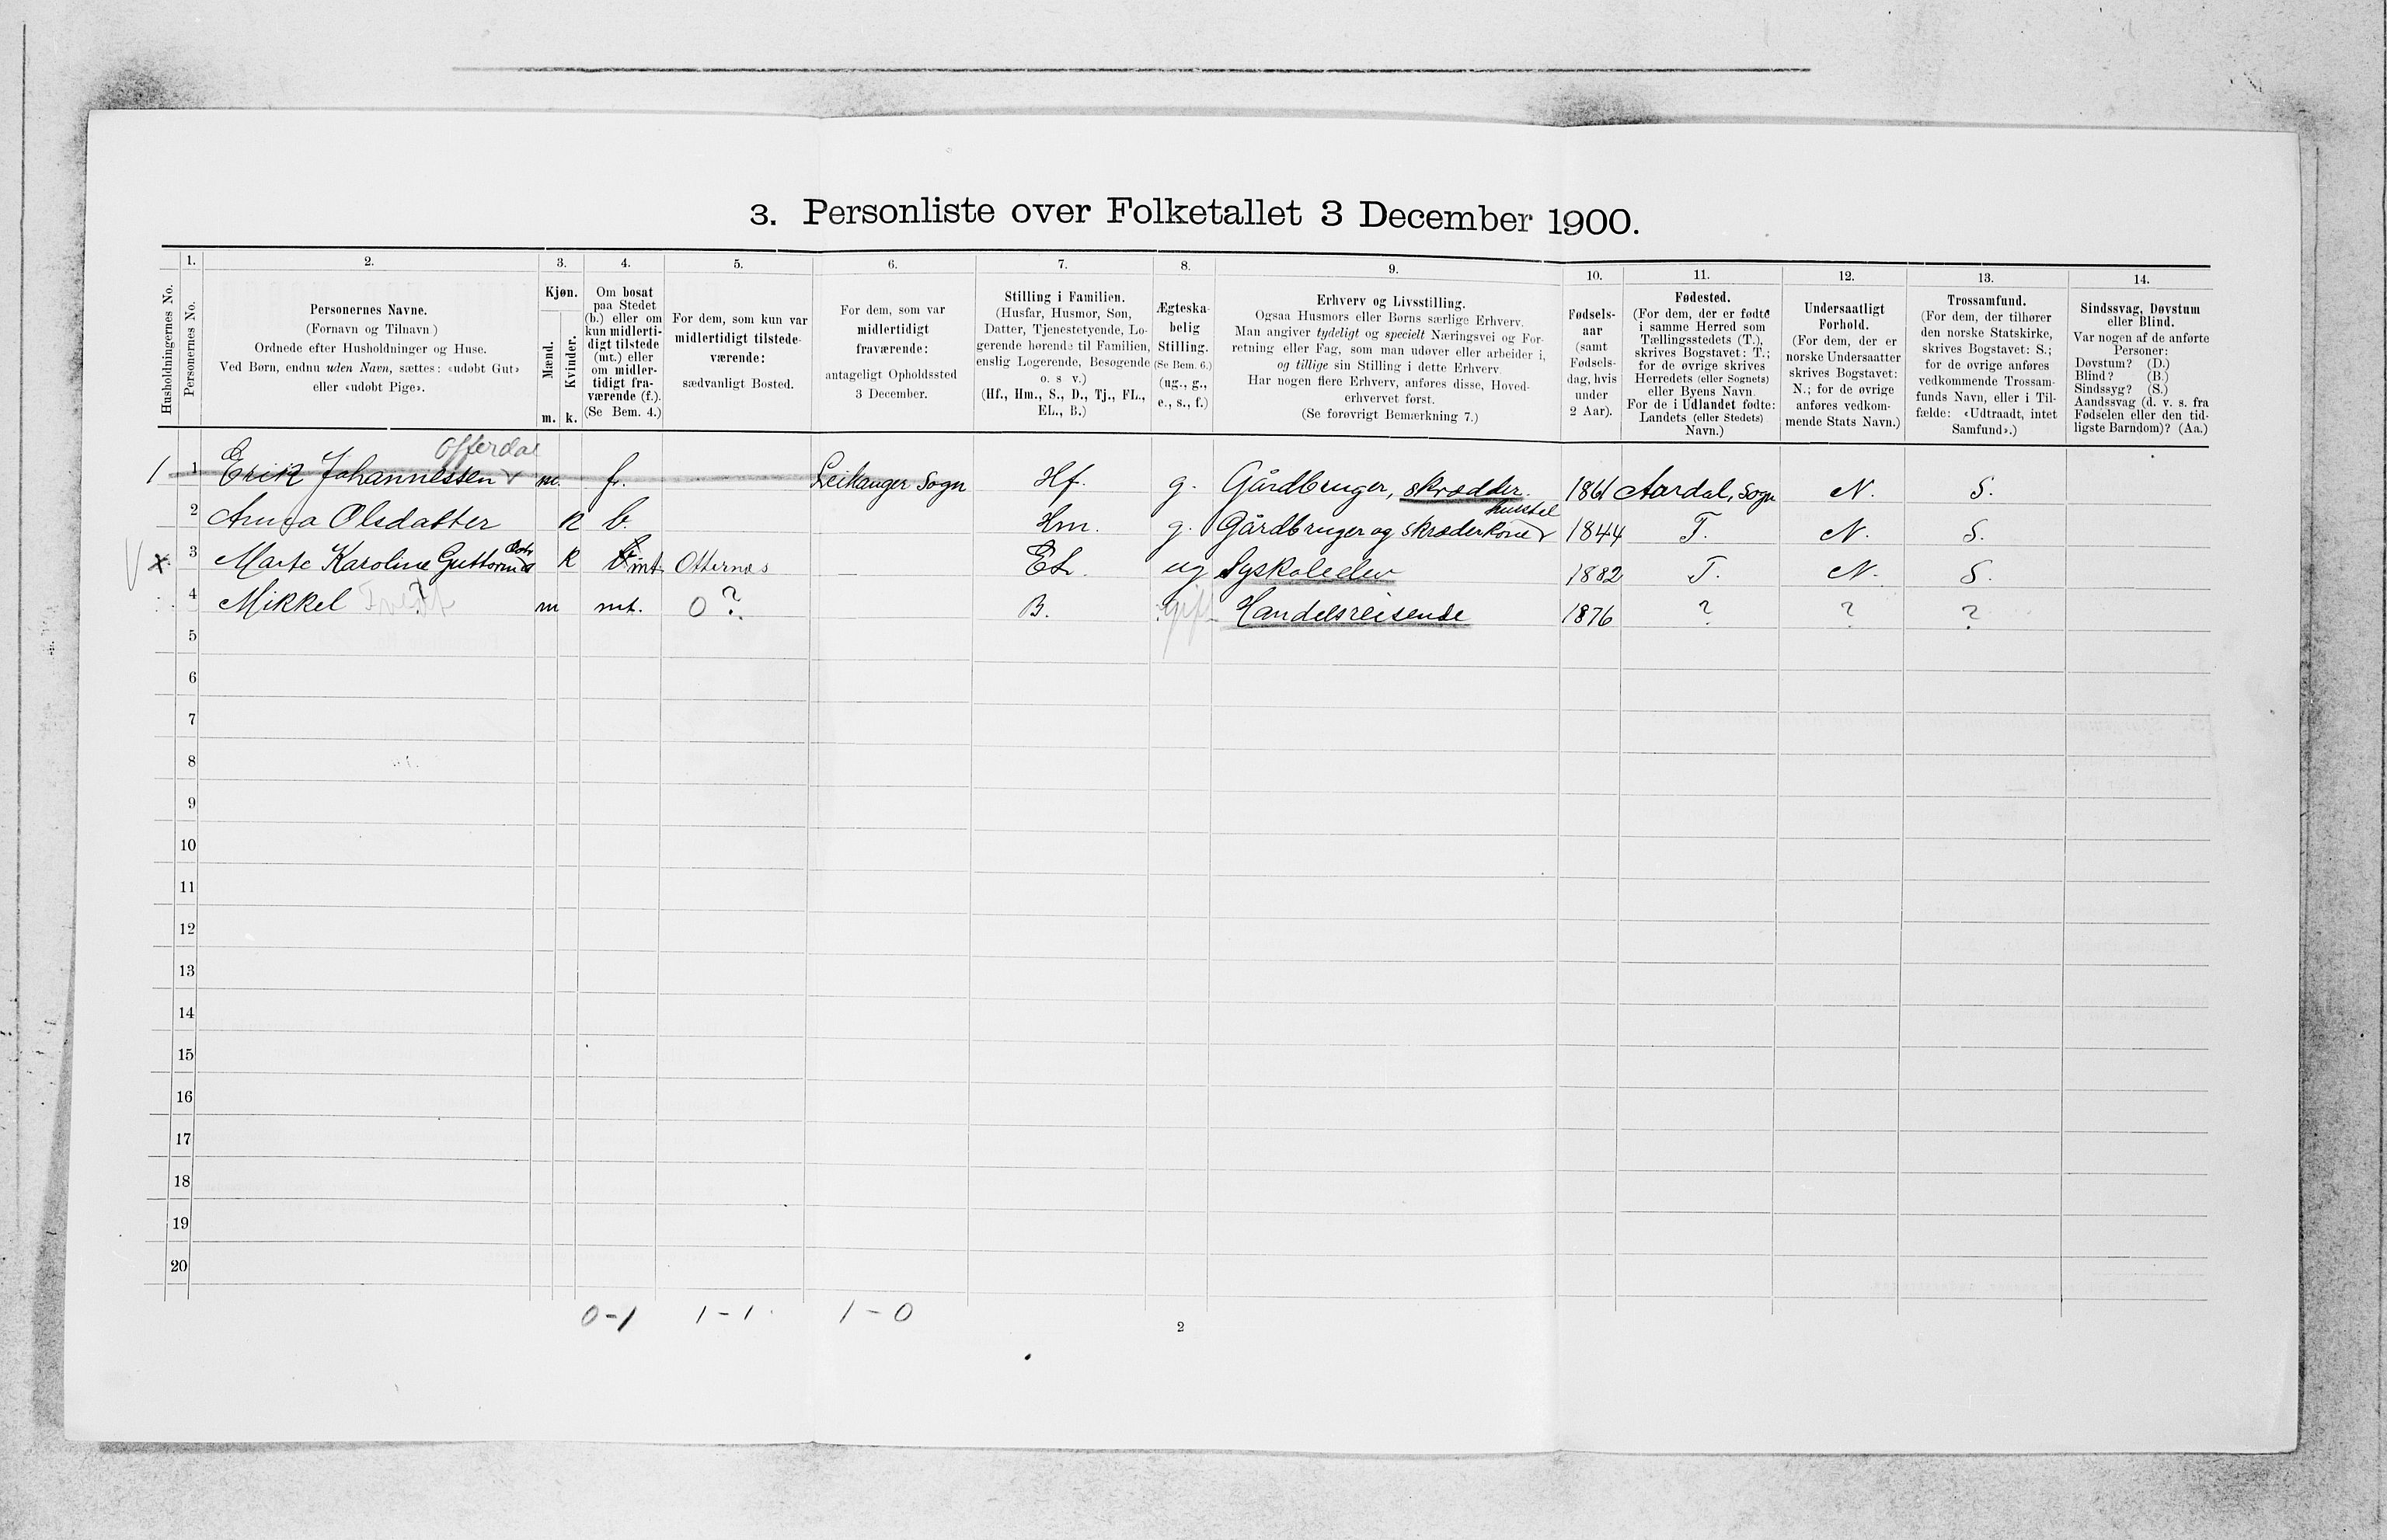 3. Personliste over Folketallet 3 December 1900.
Husholdningernes No.
1.
Personernes No.
2.
Personernes Navne.
(Fornavn og Tilnavn)
Ordnede efter Husholdninger og Huse.
Ved Børn, endnu uden Navn, sættes: «udøbt Gut»
eller «udøbt Pige».
3.
Kjøn.
Mænd.
m.
Kvinder.
k.
4.
Om bosat
paa Stedet
(b.) eller om
kun midlerti-
digt tilstede
(mt.) eller
om midler-
tidigt fra-
værende (f.).
(Se Bem. 4.)
5.
For dem, som kun var
midlertidigt tilstede-
værende:
sædvanligt Bosted.
6.
For dem, som var
midlertidigt
fraværende:
antageligt Opholdssted
3 December.
7.
Stilling i Familien.
(Husfar, Husmor, Søn,
Datter, Tjenestetyende, Lo-
gerende hørende til Familien,
enslig Logerende, Besøgende
o. s v.)
(Hf., Hm., S., D., Tj., FL.,
EL., B.)
8.
Ægteska-
belig
Stilling.
(Se Bem. 6.)
(ug., g.,
e., s., f.)
9.
Erhverv og Livsstilling.
Ogsaa Husmors eller Børns særlige Erhverv.
Man angiver tydeligt og specielt Næringsvei og For-
retning eller Fag, som man udøver eller arbeider i,
og tillige sin Stilling i dette Erhverv.
Har nogen flere Erhverv, anføres disse, Hoved-
erhvervet først.
(Se forøvrigt Bemærkning 7.)
10.
Fødsels-
aar
(samt
Fødsels-
dag, hvis
under
2 Aar).
11.
Fødested.
(For dem, der er fødte
i samme Herred som
Tællingsstedets (T.),
skrives Bogstavet: T.;
for de øvrige skrives
Herredets (eller Sognets)
eller Byens Navn.
For de i Udlandet fødte:
Landets (eller Stedets)
Navn.)
12.
Undersaatligt
Forhold.
(For dem, der er
norske Undersaatter
skrives Bogstavet:
N.; for de øvrige
anføres vedkom-
mende Stats Navn.)
13.
Trossamfund.
(For dem, der tilhører
den norske Statskirke,
skrives Bogstavet: S.;
for de øvrige anføres
vedkommende Trossam-
funds Navn, eller i Til-
fælde: «Udtraadt, intet
Samfund».)
14.
Sindssvag, Døvstum
eller Blind.
Var nogen af de anførte
Personer:
Døvstum? (D.)
Blind? (B.)
Sindssyg? (S.)
Aandssvag (d. v. s. fra
Fødselen eller den tid-
ligste Barndom)? (Aa.)
Offerdal
1 1 Erik Johannessen m. f. Leikanger Sogn Hf. g. Gårdbruger, skrædder. 1861 Aardal, Sogn N. S.
husstel
2 Anna Olsdatter k b. Hm. g. Gårdbruger og skræderkone 1844 T. N. S.
x 3 Marte Karoline Guttormsdtr k mt. Otternæs EL. ug Syskoleelev 1882 T. N. S.
4 Mikkel ? m mt. 0 ? B. gift Handelsreisende 1876 ? ? ?
5
6
7
8
9
10
11
12
13
14
15
16
17
18
19
20
0-1 1-1 1-0
2